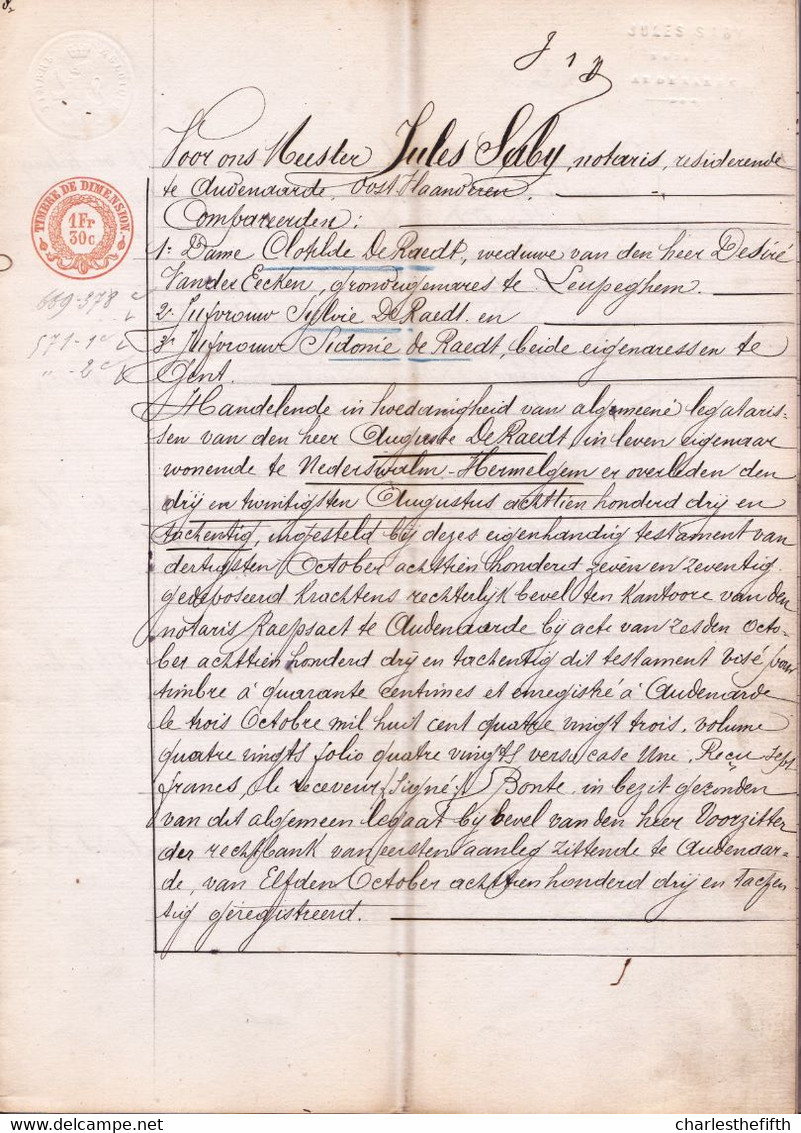 JULES SABY
Voor ons Meester Jules Saby, notaris, residerende
te Audenaarde, Oost Vlaanderen,
TIMBRE DE DIMENSION
1Fr
30c
Compareerden:
1º Dame Clotilde De Raedt, weduwe van den heer Desiré
Van der Eecken, grondeigenares te Leupeghem.
669-578
2º Jufvrouw Sylvie De Raedt en
571-1
3º Jufvrouw Sidonie de Raedt, beide eigenaressen te
" - 2
Gent.
Handelende in hoedanigheid van algemeene legataris-
sen van den heer Auguste De Raedt, in leven eigenaar
wonende te Nederswalm-Hermelgem er overleden den
drij en twintigsten Augustus achttien honderd drij en
tachentig, ingesteld bij dezes eigenhandig testament van
dertigsten October achttien honderd zeven en zeventig
gedeposeerd krachtens rechterlijk bevel ten kantoore van den
notaris Raepsaet te Audenaarde bij acte van zesden Octo-
ber achttien honderd drij en tachentig dit testament visé pour
timbre à quarante centimes et enregistré à Audenarde
le trois Octobre mil huit cent quatre vingt trois, volume
quatre vingts folio quatre vingts verso case une. Reçu sept
francs, le receveur (signé) Bonte in bezit gezonden
van dit algemeen legaat bij bevel van den heer Voorzitter
der rechtbank van eersten aanleg zittende te Audenaar-
de, van Elfden October achttien honderd drij en tachen
tig geregistreerd.
charlesthefifth